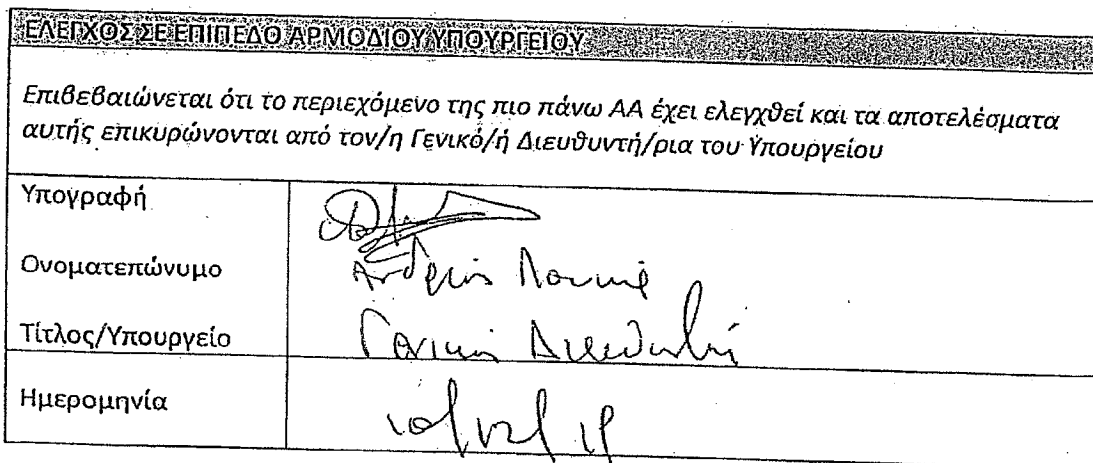 ΕΛΕΓΧΟΣ ΣΕ ΕΠΙΠΕΔΟ ΑΡΜΟΔΙΟΥ ΥΠΟΥΡΓΕΙΟΥ
Επιβεβαιώνεται ότι το περιεχόμενο της πιο πάνω ΑΑ έχει ελεγχθεί και τα αποτελέσματα
αυτής επικυρώνονται από τον/η Γενικό/ή Διευθυντή/ρια του Υπουργείου
Υπογραφή
Ονοματεπώνυμο Ανδρέας
Τίτλος/Υπουργείο Γενικός Διευθυντής
Ημερομηνία